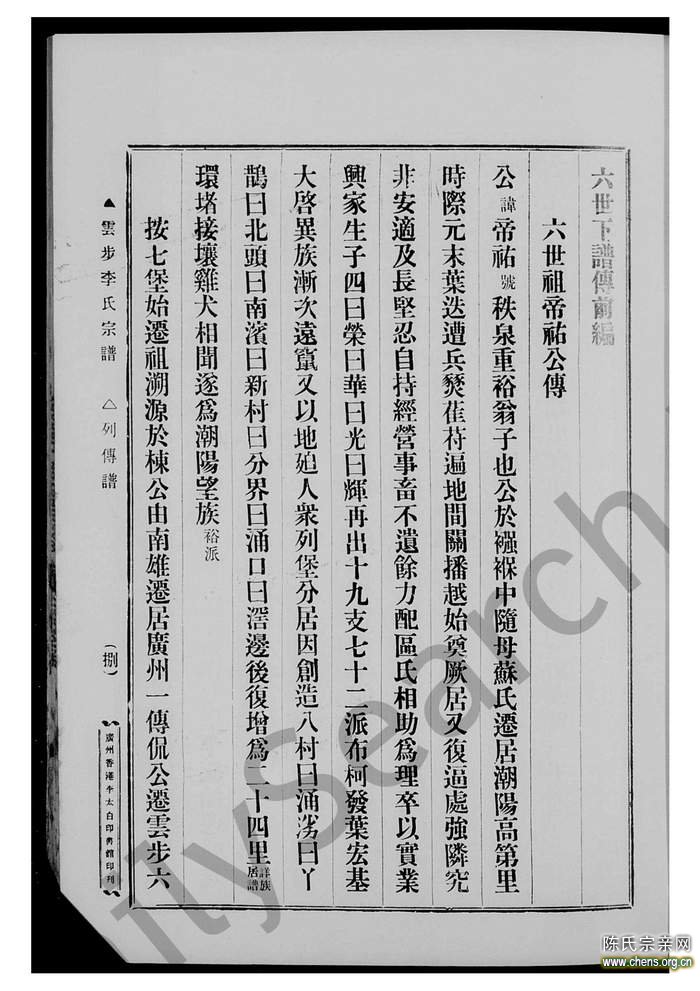 六世下譜傳前編
六世祖帝祐公傳
公諱帝祐號秩泉重裕翁子也公於襁褓中隨母蘇氏遷居潮陽高第里
時際元末葉迭遭兵燹萑苻遍地間關播越始奠厥居又復逼處強隣究
非安適及長堅忍自持經營事畜不遺餘力配區氏相助為理卒以實業
興家生子四曰榮曰華曰光曰輝再出十九支七十二派布柯發葉宏基
大啓異族漸次遠竄又以地廹人衆列堡分居因創造八村曰涌曰丫
鵲曰北頭曰南濱曰新村曰分界曰涌口曰滘邊後復增為二十四里詳族居譜
環堵接壤雞犬相聞遂為潮陽望族裕派
按七堡始遷祖溯源於棟公由南雄遷居廣州一傳侃公遷雲步六
▲雲步李氏宗譜 △列傳譜 (捌)
廣州香港李太白印書館印刊
ilySearch
陈氏宗亲网
www.chens.org.cn